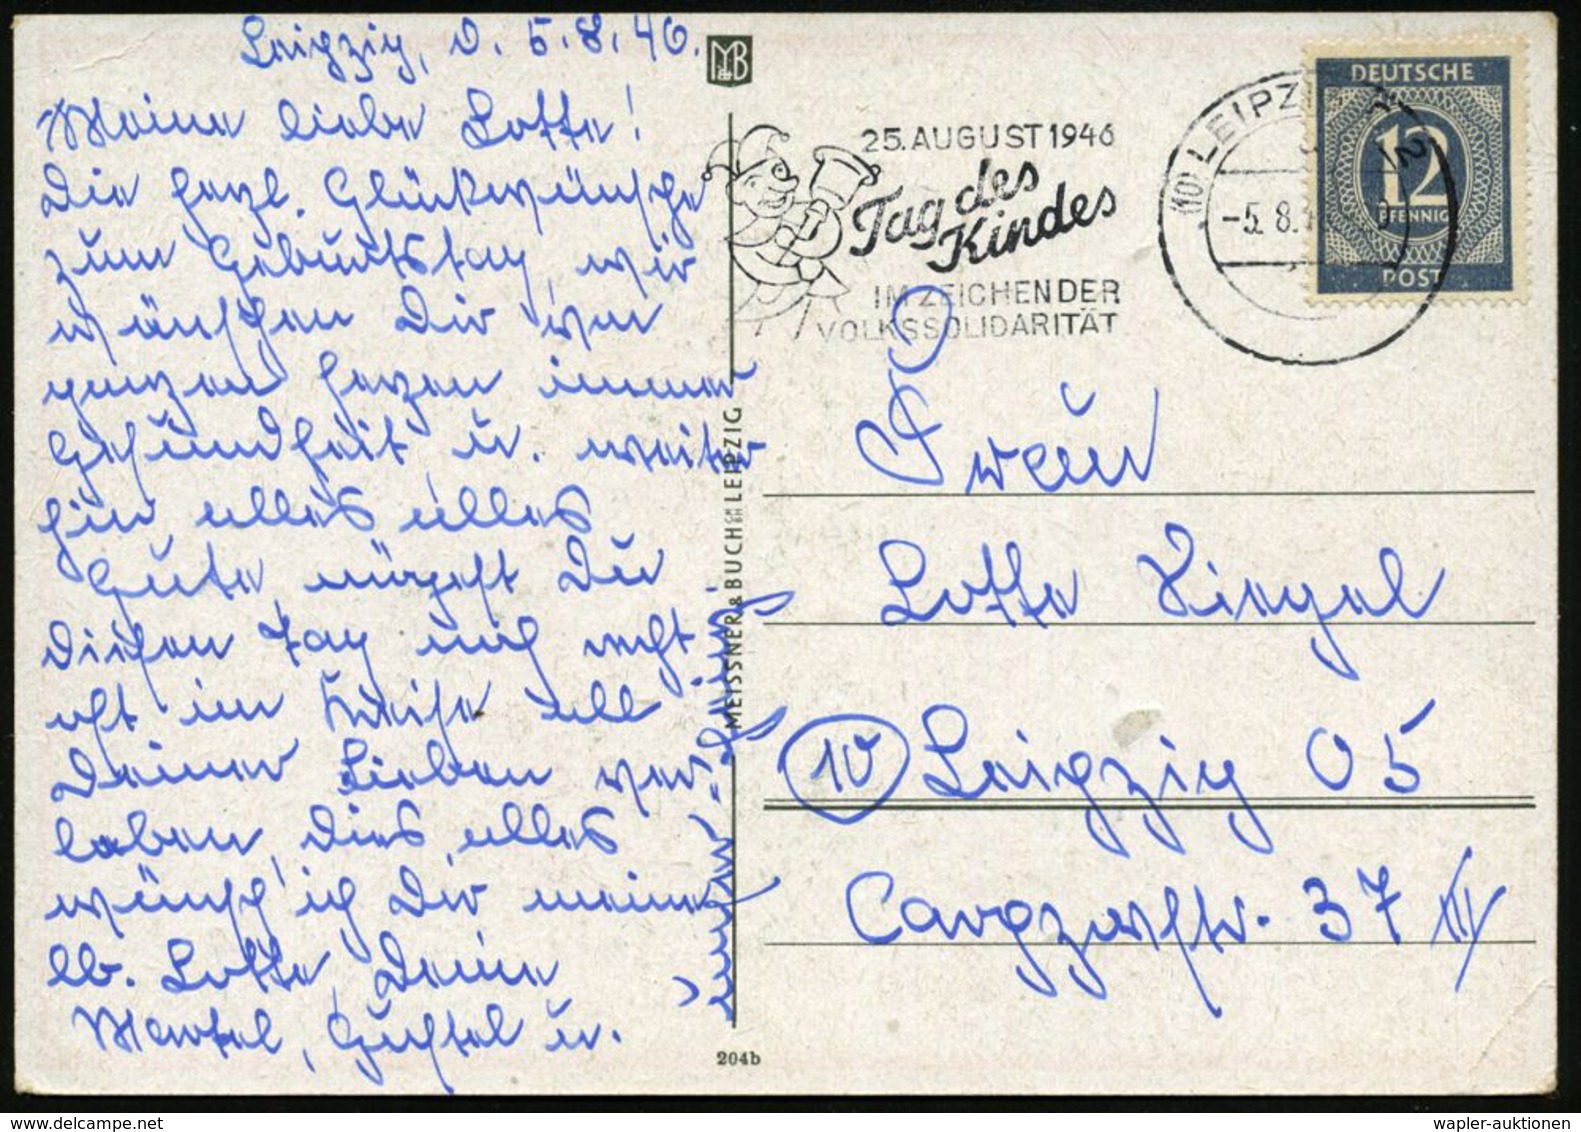 Leipzig, d. 5.8.46.
Meine liebe Lotte!
Die herzl. Glückwünsche
zum Geburtstag, wir
wünschen Dir von
ganzen Herzen immer
Gesundheit u. weiter
hin alles, alles
Gute, mögest Du
diesen Tag noch recht
oft im Kreise all
Deiner Lieben ver-
leben, dies, alles
wünsch' ich Dir meine
lb. Lotte, Deine
Martel, Gustel u.
MEISSNER & BUCH LEIPZIG
204b
25. AUGUST 1946
Tag des
Kindes
IM ZEICHEN DER
VOLKSSOLIDARITÄT
(10) LEIPZIG
-5. 8.
DEUTSCHE
12
PFENNIG
POST
Frau
Lotte Kiegel
(10) Leipzig O5
37 III
wapler-auktionen